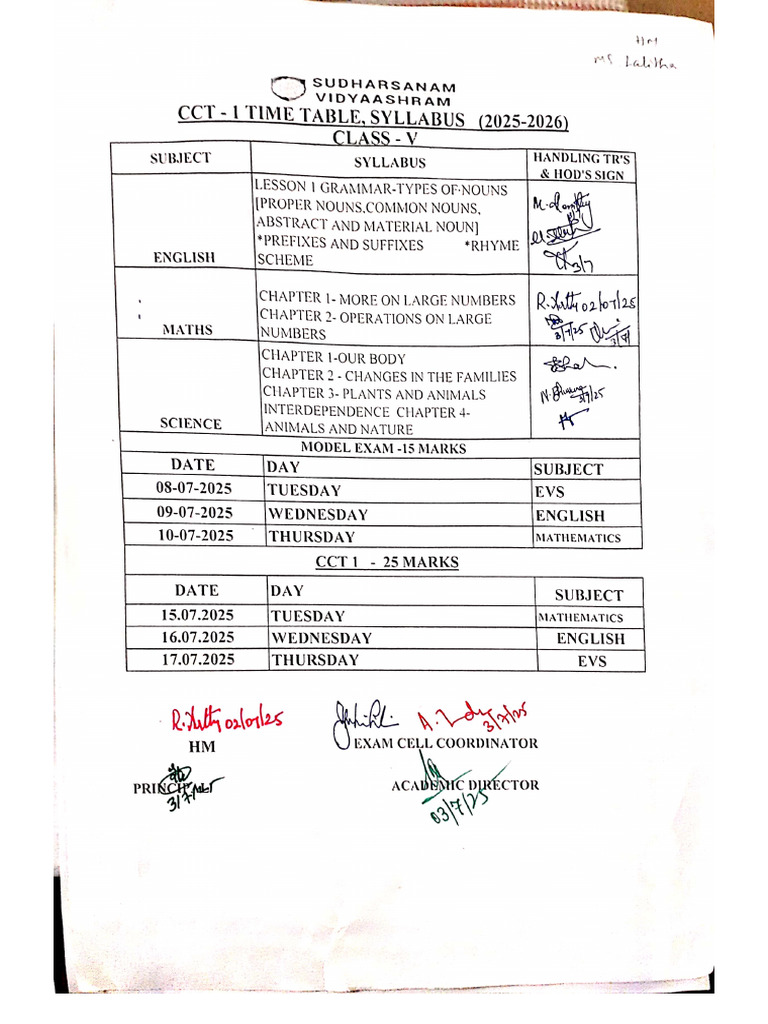 HM
MS Lalitha
SUDHARSANAM
VIDYAASHRAM
CCT - 1 TIME TABLE, SYLLABUS (2025-2026)
CLASS - V
SUBJECT SYLLABUS HANDLING TR'S
& HOD'S SIGN
LESSON 1 GRAMMAR-TYPES OF NOUNS
[PROPER NOUNS,COMMON NOUNS,
ABSTRACT AND MATERIAL NOUN]
*PREFIXES AND SUFFIXES *RHYME
ENGLISH SCHEME 3/7
CHAPTER 1- MORE ON LARGE NUMBERS 02/07/25
CHAPTER 2- OPERATIONS ON LARGE
MATHS NUMBERS 3/7/25 3/7/
CHAPTER 1-OUR BODY
CHAPTER 2 - CHANGES IN THE FAMILIES
CHAPTER 3- PLANTS AND ANIMALS 3/7/25
INTERDEPENDENCE CHAPTER 4-
SCIENCE ANIMALS AND NATURE
MODEL EXAM -15 MARKS
DATE DAY SUBJECT
08-07-2025 TUESDAY EVS
09-07-2025 WEDNESDAY ENGLISH
10-07-2025 THURSDAY MATHEMATICS
CCT 1 - 25 MARKS
DATE DAY SUBJECT
15.07.2025 TUESDAY MATHEMATICS
16.07.2025 WEDNESDAY ENGLISH
17.07.2025 THURSDAY EVS
02/07/25 3/7/25
HM EXAM CELL COORDINATOR
PRINCIPAL ACADEMIC DIRECTOR
3/7/25 03/7/25